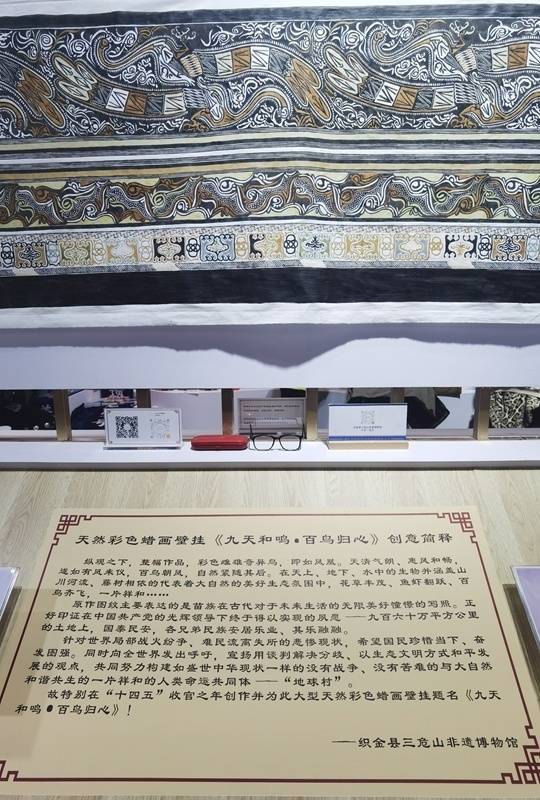 天然彩色蜡画壁挂《九天和鸣•百鸟归心》创意简释
纵观之下，整幅作品，彩色雄雄奇异鸟，即如凤凰。天清气朗、惠风和畅，
遂如有凤来仪，百鸟朝凤，自然紧随其后。在天上、地下、水中的生物并涵盖山
川河流、藤树相依的代表着大自然的美好生态氛围中，花草丰茂、鱼虾翻跃、百
鸟齐飞，一片祥和……
原作图纹主要表达的是苗族在古代对于未来生活的无限美好憧憬的写照。正
好印证在中国共产党的光辉领导下终于得以实现的夙愿——九百六十万平方公里
的土地上，国泰民安，各兄弟民族安居乐业、其乐融融。
针对世界局部战火纷争、难民流离失所的悲惨现状，希望国民珍惜当下、奋
发图强。同时向全世界发出呼吁，宣扬用谈判解决分歧、以生态文明方式和平发
展的观点，共同努力构建如盛世中华现状一样的没有战争、没有苦难的与大自然
和谐共生的一片祥和的人类命运共同体——“地球村”。
故特别在“十四五”收官之年创作并为此大型天然彩色蜡画壁挂题名《九天
和鸣•百鸟归心》！
——织金县三危山非遗博物馆